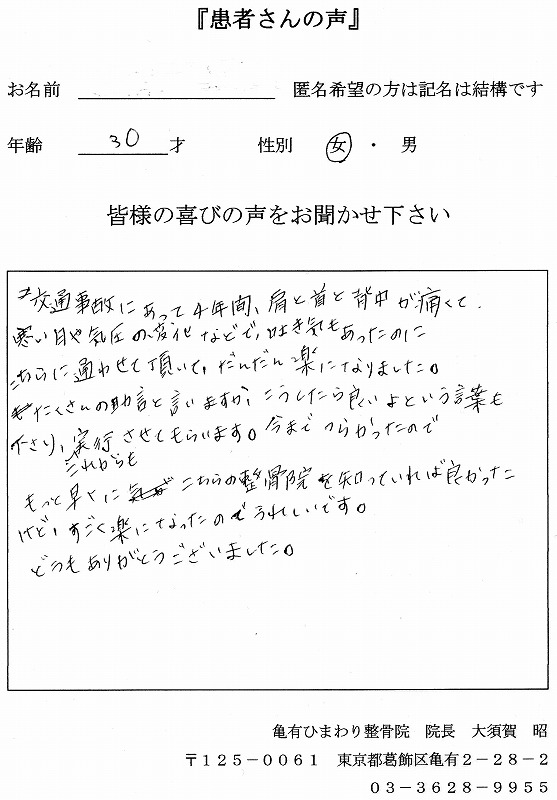 『患者さんの声』
お名前 匿名希望の方は記名は結構です
年齢 30 才 性別 女 ・ 男
皆様の喜びの声をお聞かせ下さい
交通事故にあって4年間、肩と首と背中が痛くて、
寒い日や気圧の変化などで、吐き気もあったのに
こちらに通わせて頂いて、だんだん楽になりました。
たくさんの助言と言いますか、こうしたら良いよという言葉も
下さり、実行させてもらいます。今までつらかったので
これからも
もっと早くに こちらの整骨院を知っていれば良かった
けど、すごく楽になったのでうれしいです。
どうもありがとうございました。
亀有ひまわり整骨院 院長 大須賀 昭
〒125-0061 東京都葛飾区亀有2-28-2
03-3628-9955